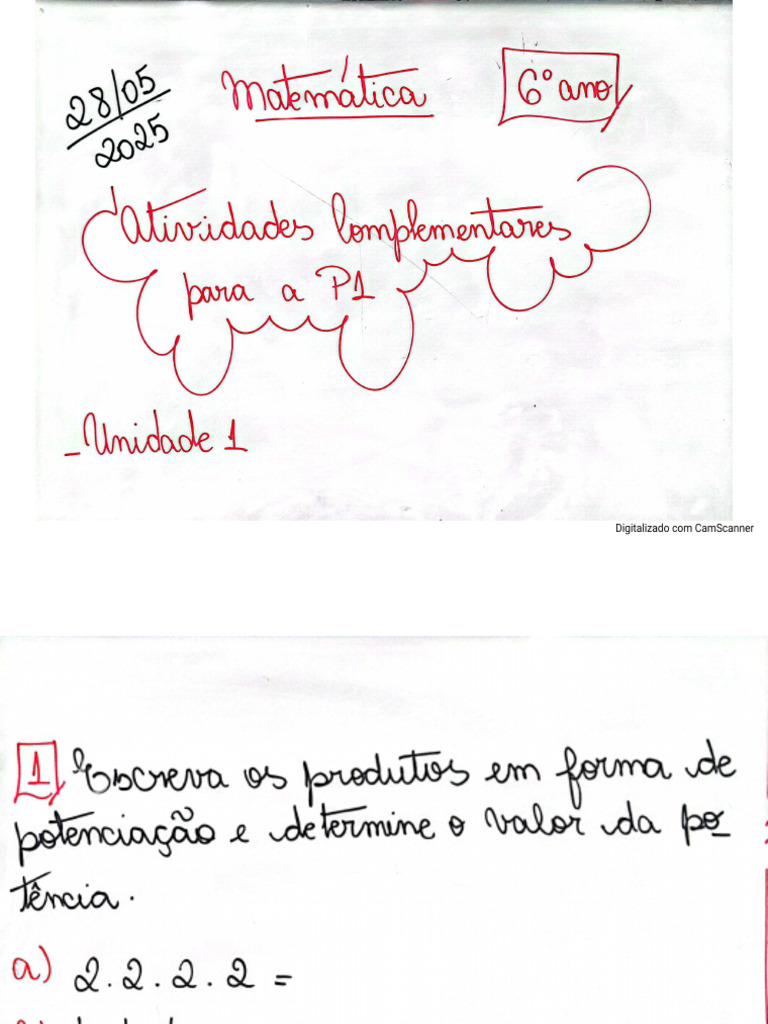 28/05
2025
Matemática
6º ano
Atividades Complementares
para a P1
_ Unidade 1
Digitalizado com CamScanner
1 Escreva os produtos em forma de
potenciação e determine o valor da po_
tência.
a) 2.2.2.2 =